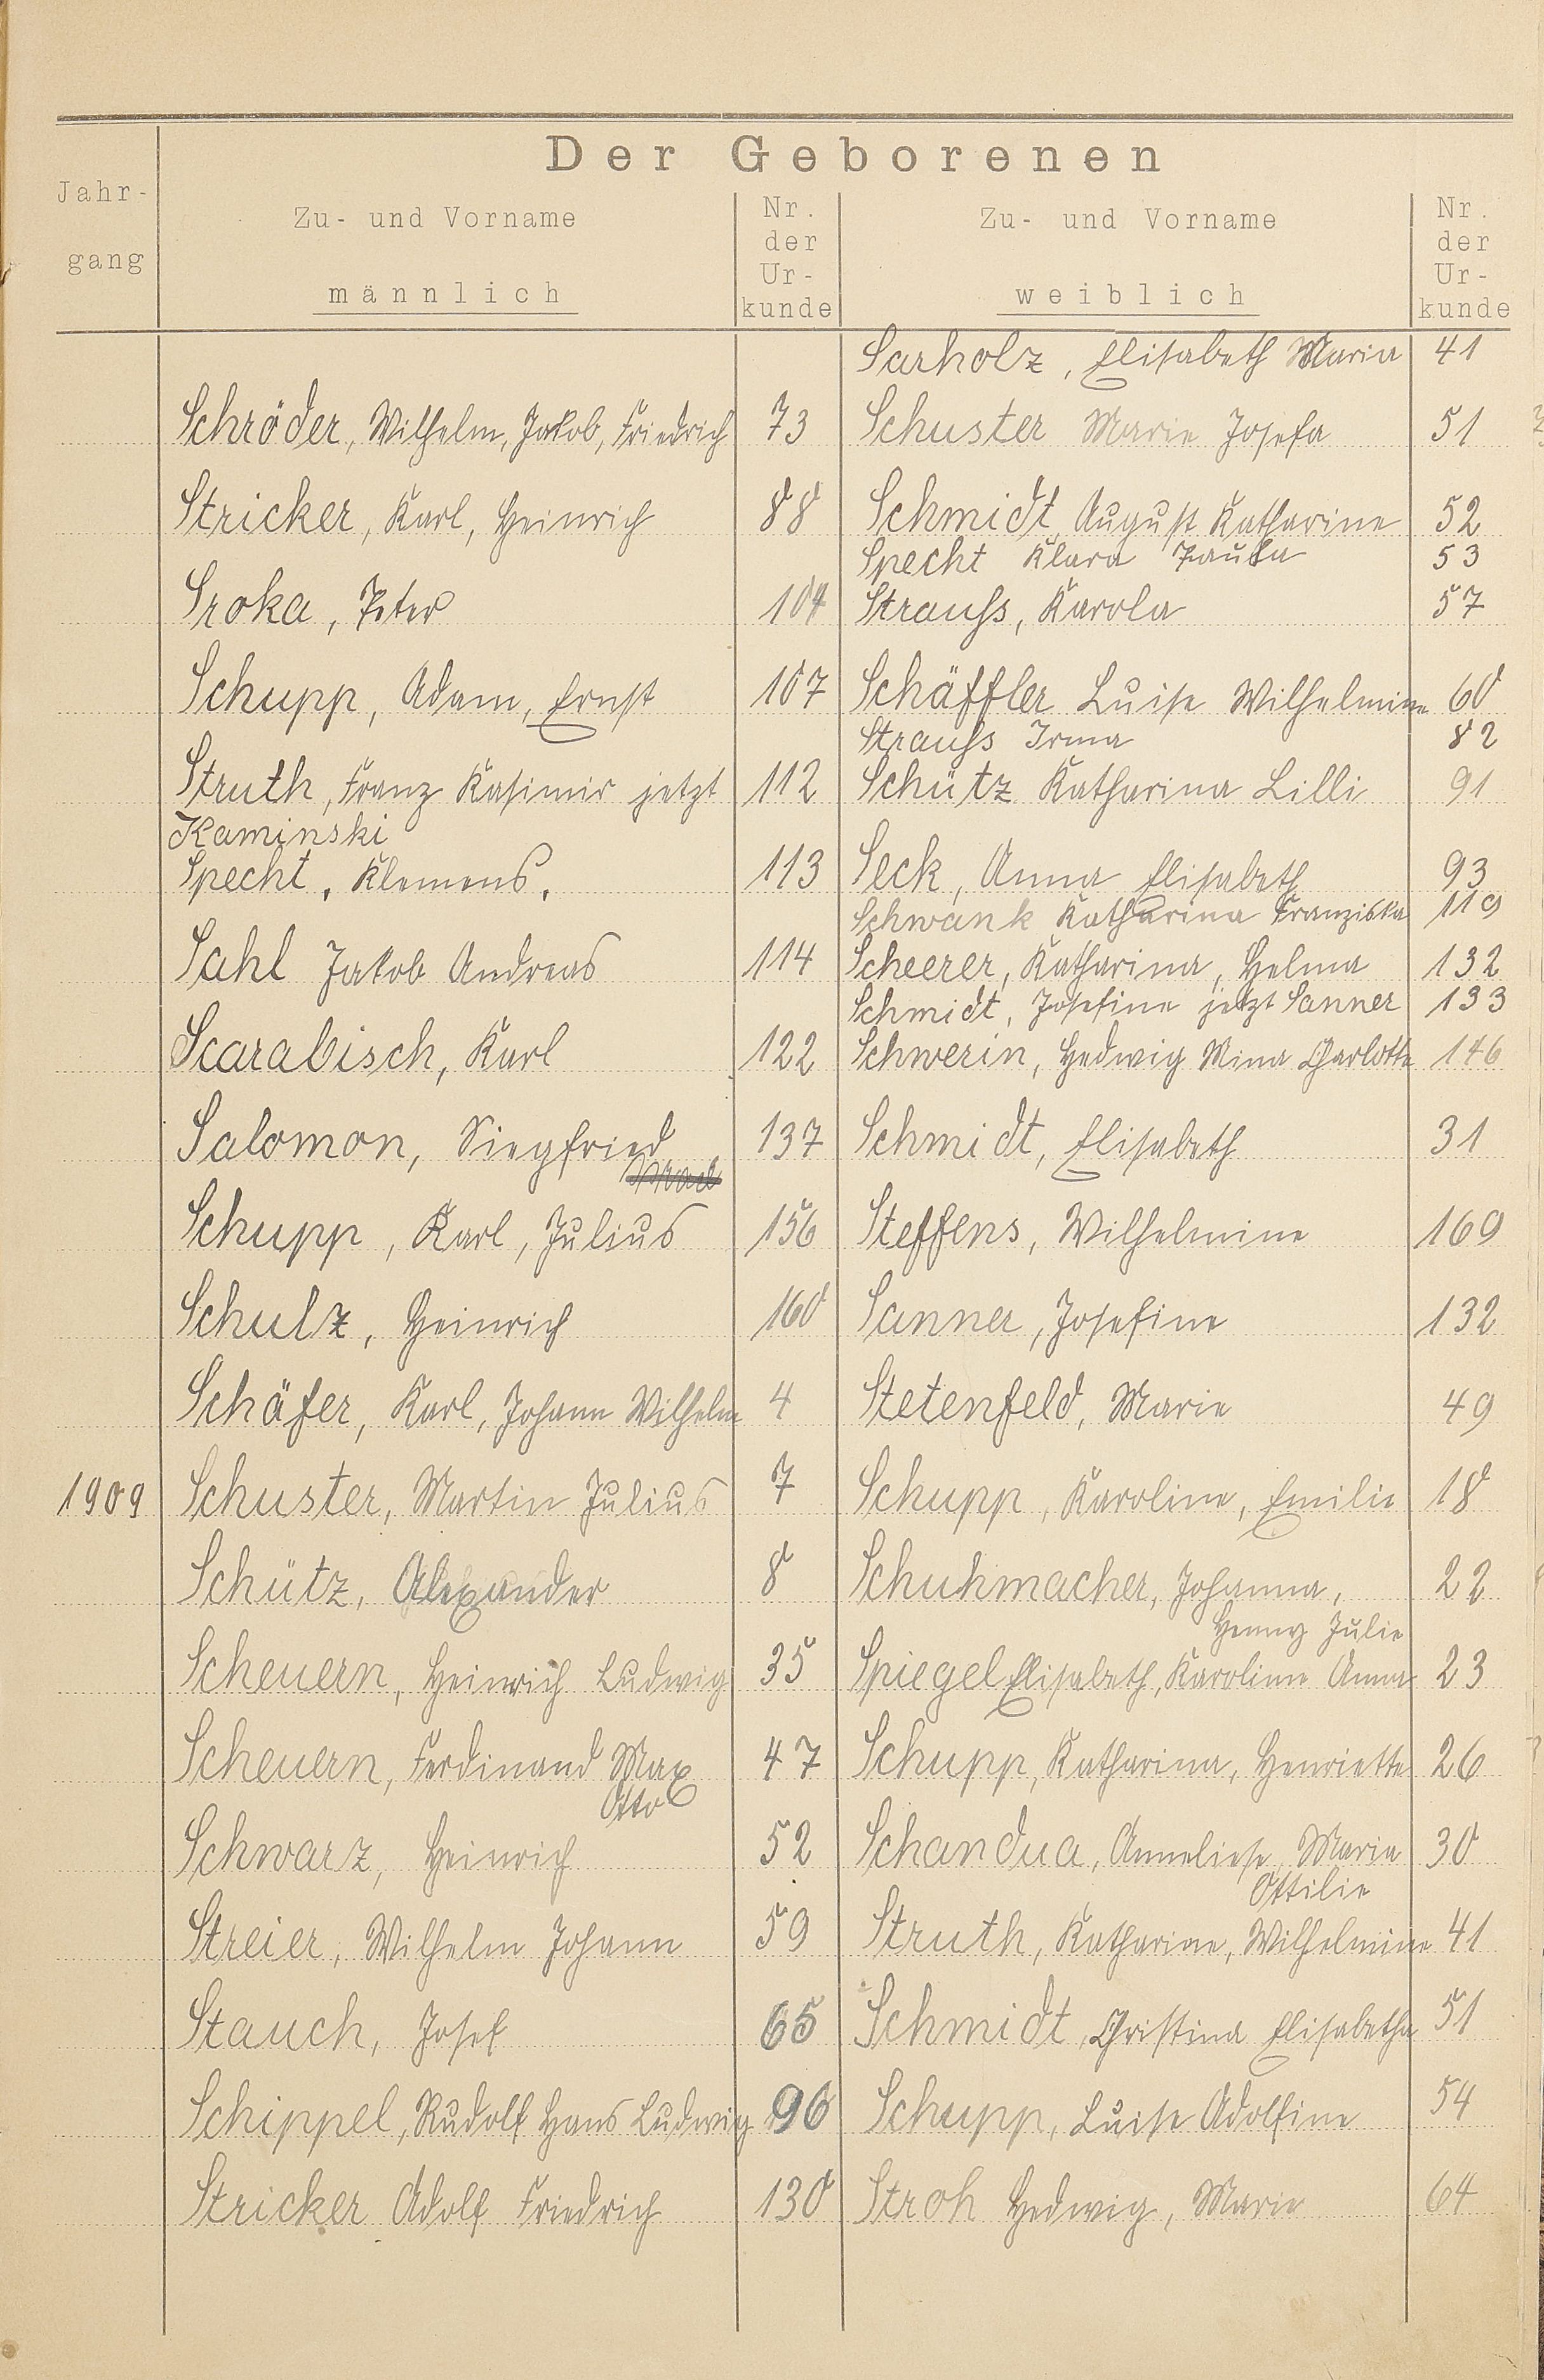 Der Geborenen
Jahr-
gang
Zu- und Vorname
männlich
Nr.
der
Ur-
kunde
Zu- und Vorname
weiblich
Nr.
der
Ur-
kunde
Sarholz, Elisabeth Maria 41
Schröder, Wilhelm, Jakob, Friedrich 73 Schuster Marie Josefa 51
Stricker, Karl, Heinrich 88 Schmidt August Katharine 52
Specht Klara Paula 53
Sroka, Peter 104 Strauss, Karola 57
Schupp, Adam, Ernst 107 Schäffler Luise Wilhelmine 60
Strauss Irma 82
Struth, Franz Kasimir jetzt 112 Schütz Katharina Lilli 91
Kaminski
Specht, Klemens. 113 Seck, Anna Elisabeth 93
Schwank Katharina Franziska 119
Sahl Jakob Andreas 114 Scheerer, Katharina, Helma 132
Schmidt, Josefine jetzt Sanner 133
Scarabisch, Karl 122 Schwerin, Hedwig Mina Charlotte 146
Salomon, Siegfried 137 Schmidt, Elisabeth 31
Schupp, Karl, Julius 156 Steffens, Wilhelmine 169
Schulz, Heinrich 160 Sanner, Josefine 132
Schäfer, Karl, Johann Wilhelm 4 Stetenfeld, Marie 49
1909 Schuster, Martin Julius 7 Schupp, Karoline, Emilie 18
Schütz, Alexander 8 Schuhmacher, Johanna, 22
Henny Julie
Scheuern, Heinrich Ludwig 35 Spiegel Elisabeth, Karoline Anna 23
Scheuern, Ferdinand Max 47 Schupp, Katharina, Henriette 26
Otto
Schwarz, Heinrich 52 Schandua, Anneliese Maria 30
Ottilie
Streier, Wilhelm Johann 59 Struth, Katharine, Wilhelmine 41
Stauch, Josef 65 Schmidt, Christina Elisabetha 51
Schippel, Rudolf Hans Ludwig 96 Schupp, Luise Adolfine 54
Stricker Adolf Friedrich 130 Stroh Hedwig, Marie 64